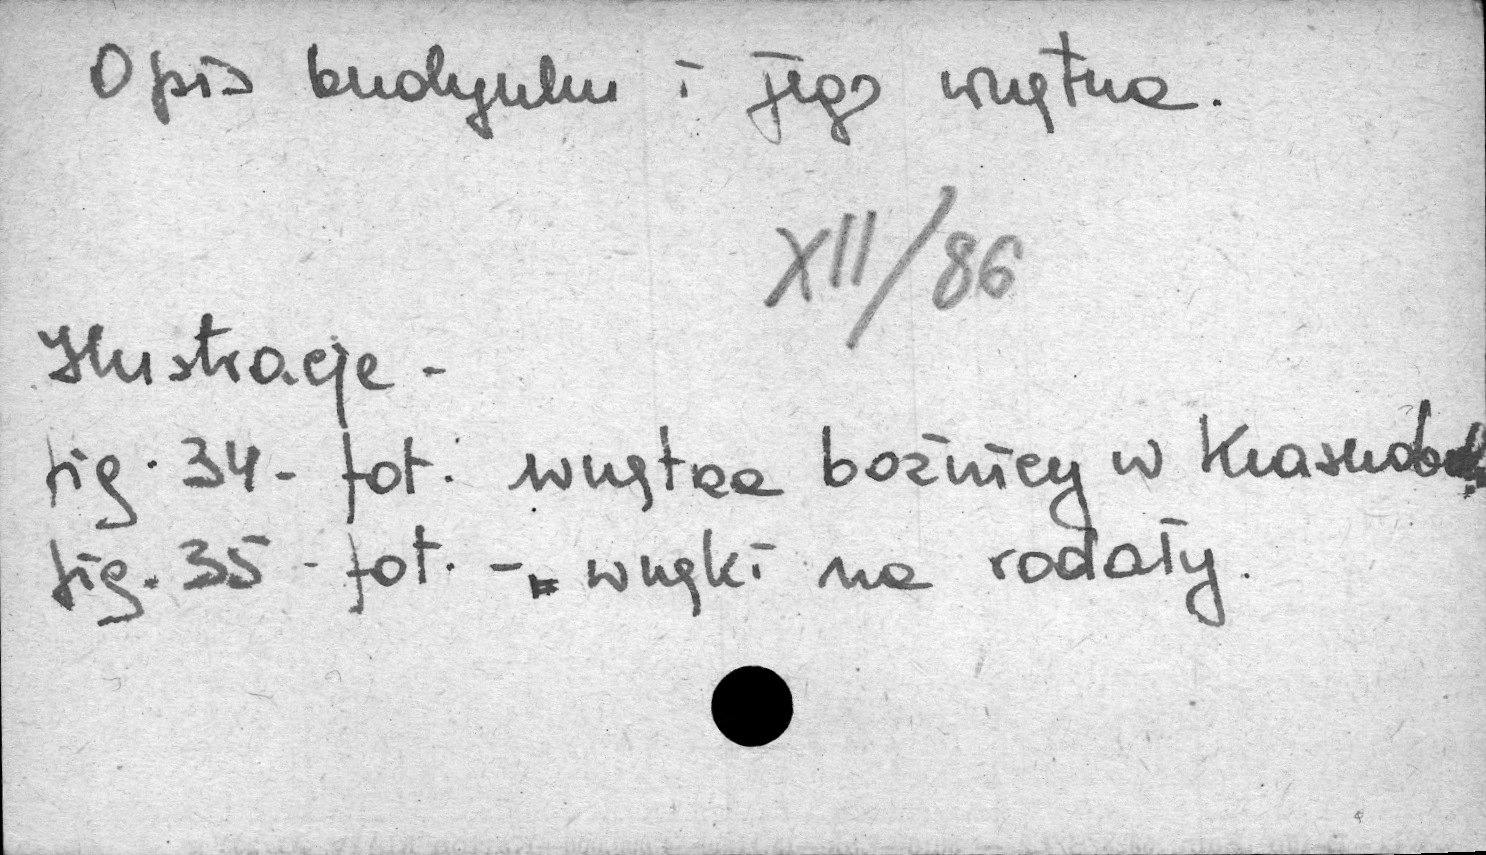 Opis budynku i jego wnętrza.
XII/86
Ilustracje -
fig. 34 - fot. wnętrza bożnicy w
fig. 35 - fot. - wnęki na rodały.